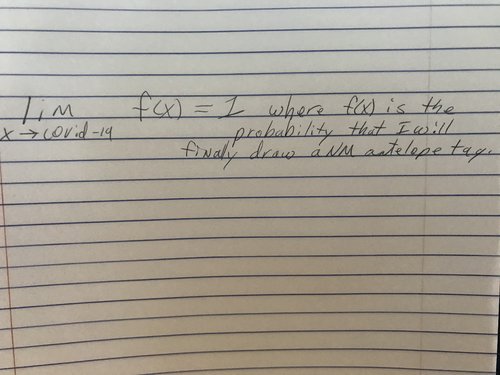 lim f(x) = 1 where f(x) is the
x → covid-19 probability that I will
finally draw a NM antelope tag.